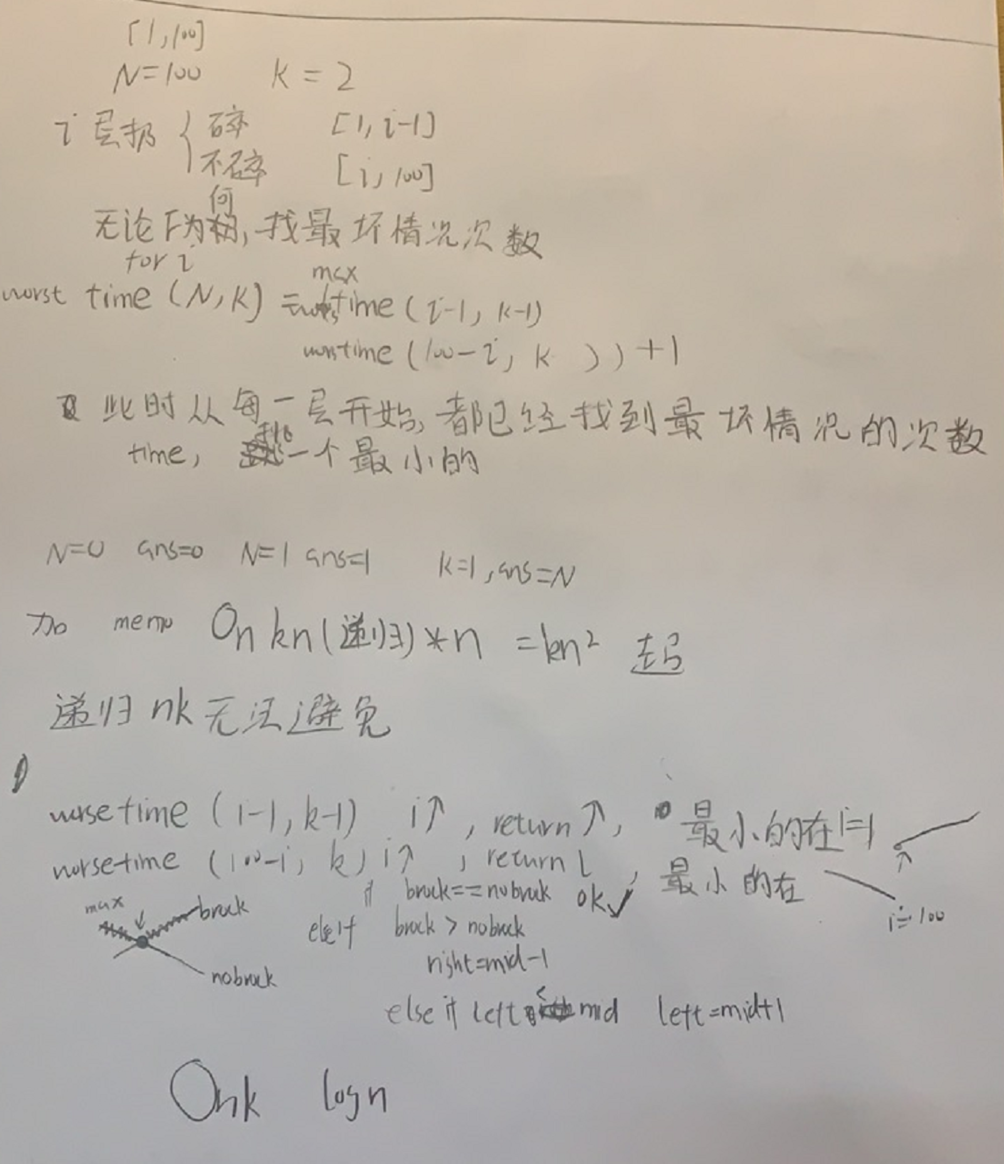 [1,100]
N=100 K=2
i层扔 { 碎 [1,i-1]
不碎 [i,100]
无论F为何,找最坏情况次数
for i
worst time (N,K) = max time (i-1, k-1)
worstime (100-i, K )) +1
此时从每一层开始,都已经找到最坏情况的次数
time, 找一个最小的
N=0 ans=0 N=1 ans=1 k=1,ans=N
加 memo On kn(递归)*n =kn² 超
递归nk无法避免
worsetime (i-1, k-1) i↑, return↑, 最小的在i=1
worsetime (100-i, k) i↑, return↓, 最小的在
i=100
if bruck==nobruk ok✓
max bruck
else if bruck > nobruck
nobruck
right=mid-1
else if left < mid left=mid+1
Onk logn